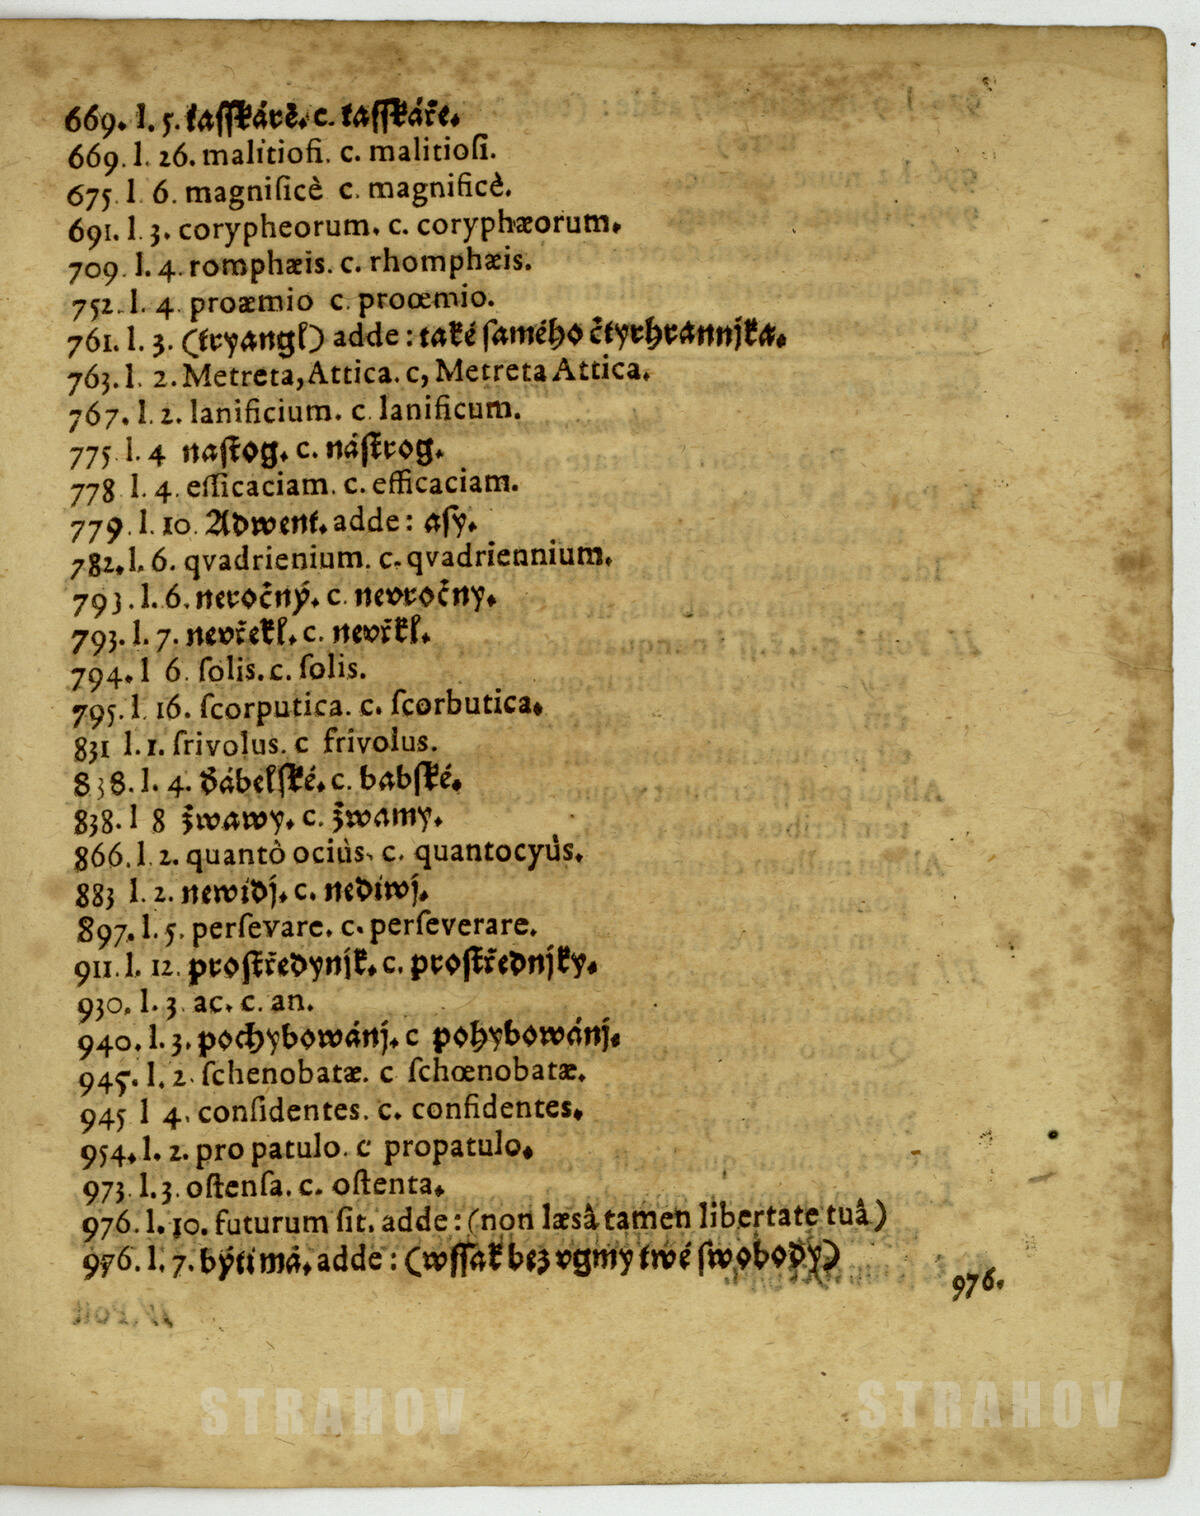 669. l. 5. kaſſkářě. c. kaſſkáře.
669. l. 26. malitiofi. c. malitioſi.
675 l 6. magniſicè c. magnificè.
691. l. 3. corypheorum. c. coryphæorum.
709. l. 4. romphæis. c. rhomphæis.
752. l. 4. proæmio c. proœmio.
761. l. 3. (tryangl) adde: také ſamého čtyrhrannjka.
763. l. 2. Metreta, Attica. c, Metreta Attica.
767. l. 2. laniſicium. c. lanificum.
775 l. 4 naſtog. c. náſtrog.
778 l. 4. eſſicaciam. c. efficaciam.
779. l. 10. Adwent. adde: aſy.
782. l. 6. qvadrienium. c. qvadriennium.
793. l. 6. neročný. c. nevročny.
793. l. 7. nevřekl. c. nevřkl.
794. l 6. folis. c. ſolis.
795. l. 16. ſcorputica. c. ſcorbutica.
831 l. 1. ſrivolus. c frivolus.
838. l. 4. ďábelſké. c. babſké.
838. l 8 žwawy. c. žwamy.
866. l. 2. quantò ociùs. c. quantocyùs.
883 l. 2. newidj. c. nediwj.
897. l. 5. perſevare. c. perſeverare.
911. l. 12. proſtředynjk. c. proſtřednjky.
930. l. 3. ac. c. an.
940. l. 3. pochybowánj. c pohybowánj.
945. l. 2. ſchenobatæ. c ſchœnobatæ.
945 l 4. conſidentes. c. confidentes.
954. l. 2. pro patulo. c propatulo.
973. l. 3. oſtenſa. c. oſtenta.
976. l. 10. futurum ſit. adde: (non læsâ tamen libertate tuâ)
976. l. 7. býti má. adde: (wſſak bez vgmy twé ſwobody)
976.
STRAHOV STRAHOV